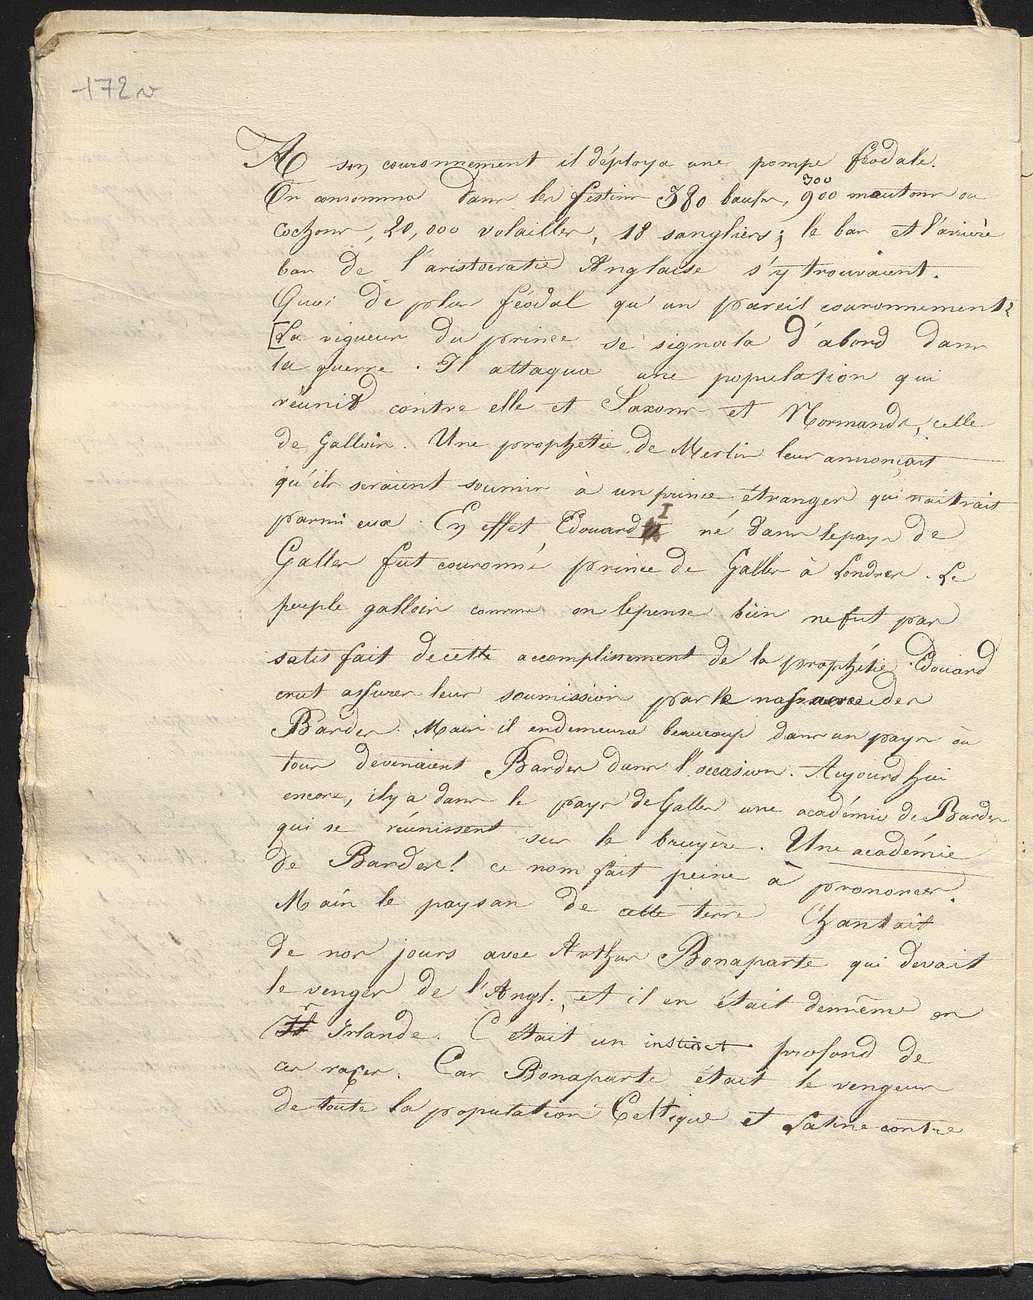 172 v
A son couronnement il déploya une pompe féodale.
On consomma dans les festins 380 bœufs, 900 moutons ou
300
cochons, 20,000 volailles, 18 sangliers; le ban et l'arrière
ban de l'aristocratie Anglaise s'y trouvaient.
Quoi de plus féodal qu'un pareil couronnement?
[La vigueur du prince se signala d'abord dans
la guerre. Il attaqua une population qui
réunit contre elle et Saxons et Normands, celle
de Gallois. Une prophétie de Merlin leur annonçait
qu'ils seraient soumis à un prince étranger qui naitrait
parmi eux. En effet Edouard I né dans le pays de
Galles fut couronné prince de Galles à Londres. Le
peuple gallois comme on le pense bien ne fut pas
satisfait de cette accomplissement de la prophétie. Edouard
crut assurer leur soumission par le massacre des
Bardes. Mais il en demeura beaucoup dans un pays où
tous devenaient Bardes dans l'occasion. Aujourd'hui
encore, il y a dans le pays de Galles une académie de Bardes
qui se réunissent sur la bruyère. Une académie
de Bardes! ce nom fait peine à prononcer.
Mais le paysan de cette terre Chantait
de nos jours avec Arthur Bonaparte qui devait
le venger de l'Angl., et il en était de même en
Irlande. C'était un instinct profond de
ces races. Car Bonaparte était le vengeur
de toute la population Celtique et Latine contre